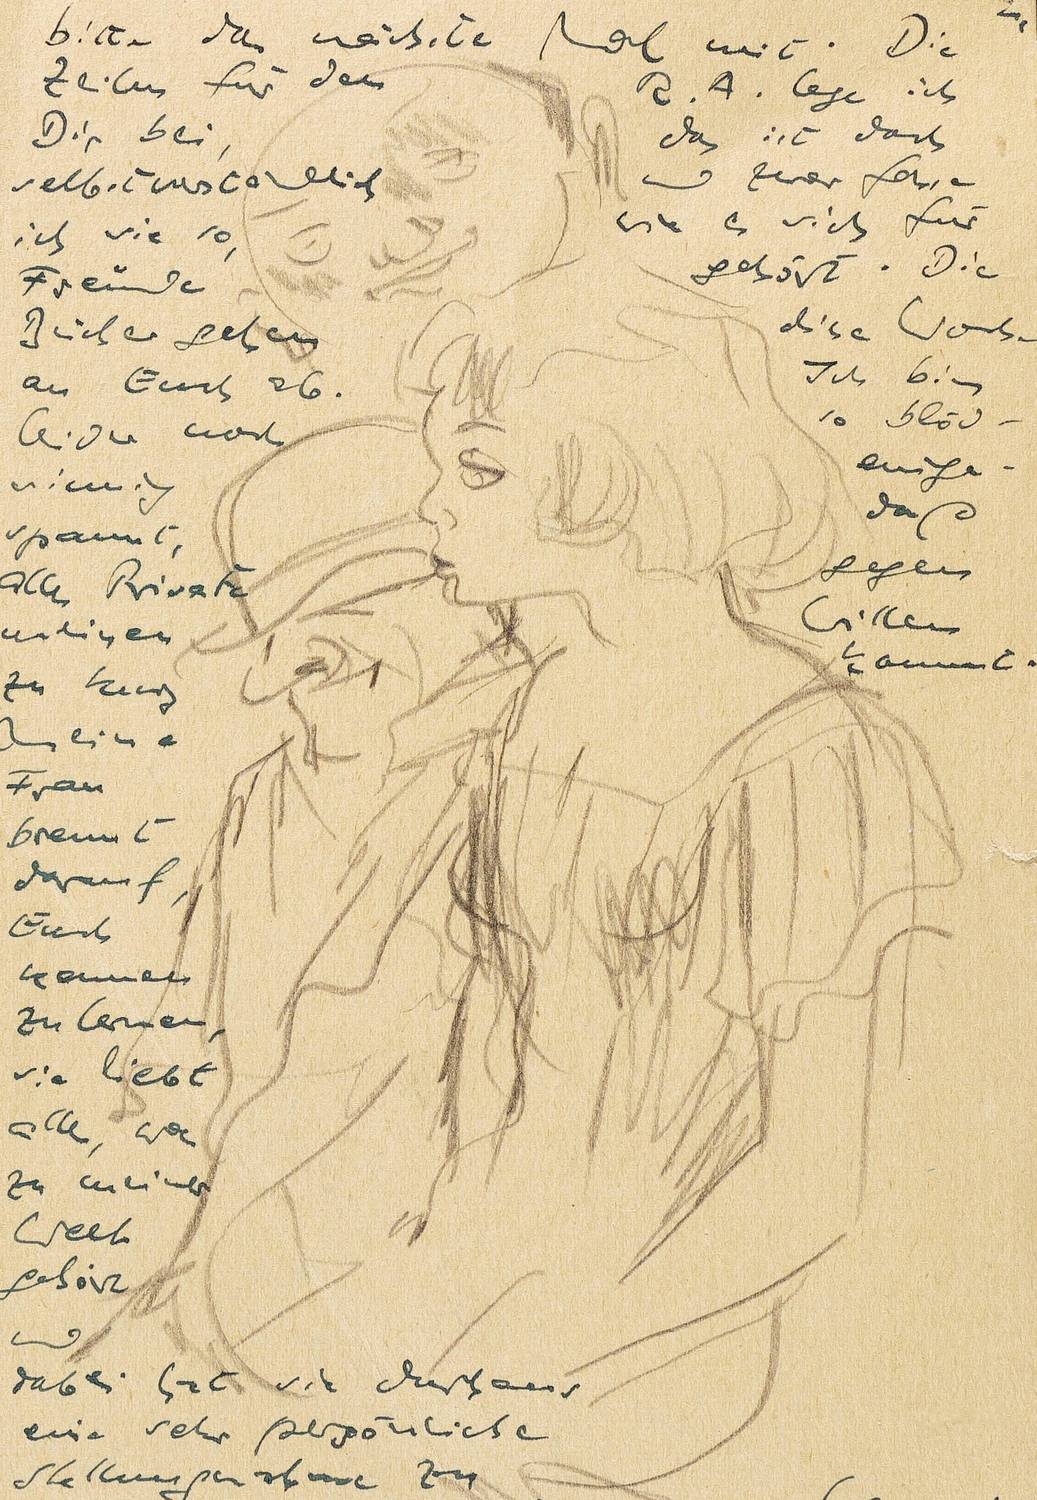 bitte das nächste Mal mit. Die
Zeilen für den R. A. lege ich
Dir bei, das ist doch
selbstverständlich und zwar
ich sie so, wie es sich für
Freunde gehört. Die
Bücher gehen diese Woche
an Euch ab. Ich bin
leider noch so blöd-
sinnig einge-
spannt, daß
alles Private gegen
meinen Willen
zu kurz kommt.
Meine
Frau
brennt
darauf,
Euch
kennen
zu lernen,
sie liebt
alle, was
zu meiner
Welt
gehört
und
dabei hat sie durchaus
eine sehr persönliche
Stellungnahme zu